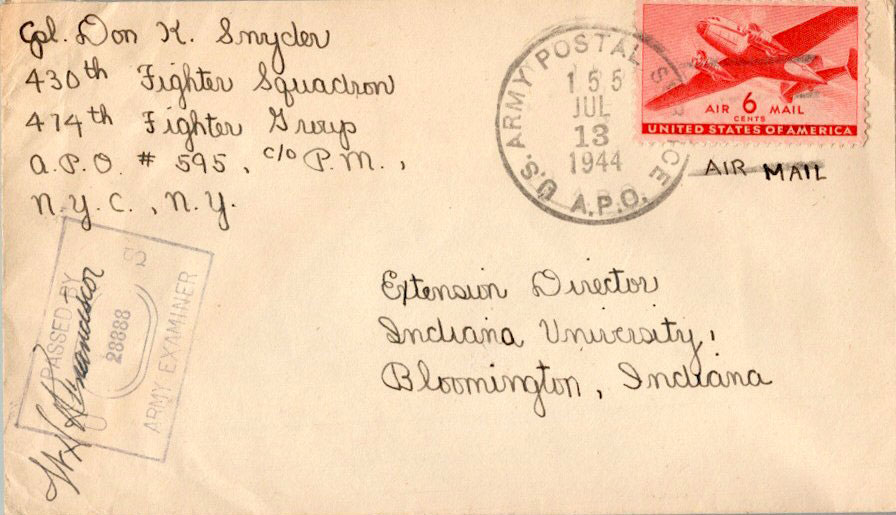 Cpl. Don K. Snyder
430th Fighter Squadron
474th Fighter Group
A.P.O. # 595, c/o P.M.,
N.Y.C., N.Y.
U.S. ARMY POSTAL SERVICE
155
JUL
13
1944
A.P.O.
AIR 6 MAIL
CENTS
UNITED STATES OF AMERICA
AIR MAIL
PASSED BY
28888
ARMY EXAMINER
Extension Director
Indiana University,
Bloomington, Indiana